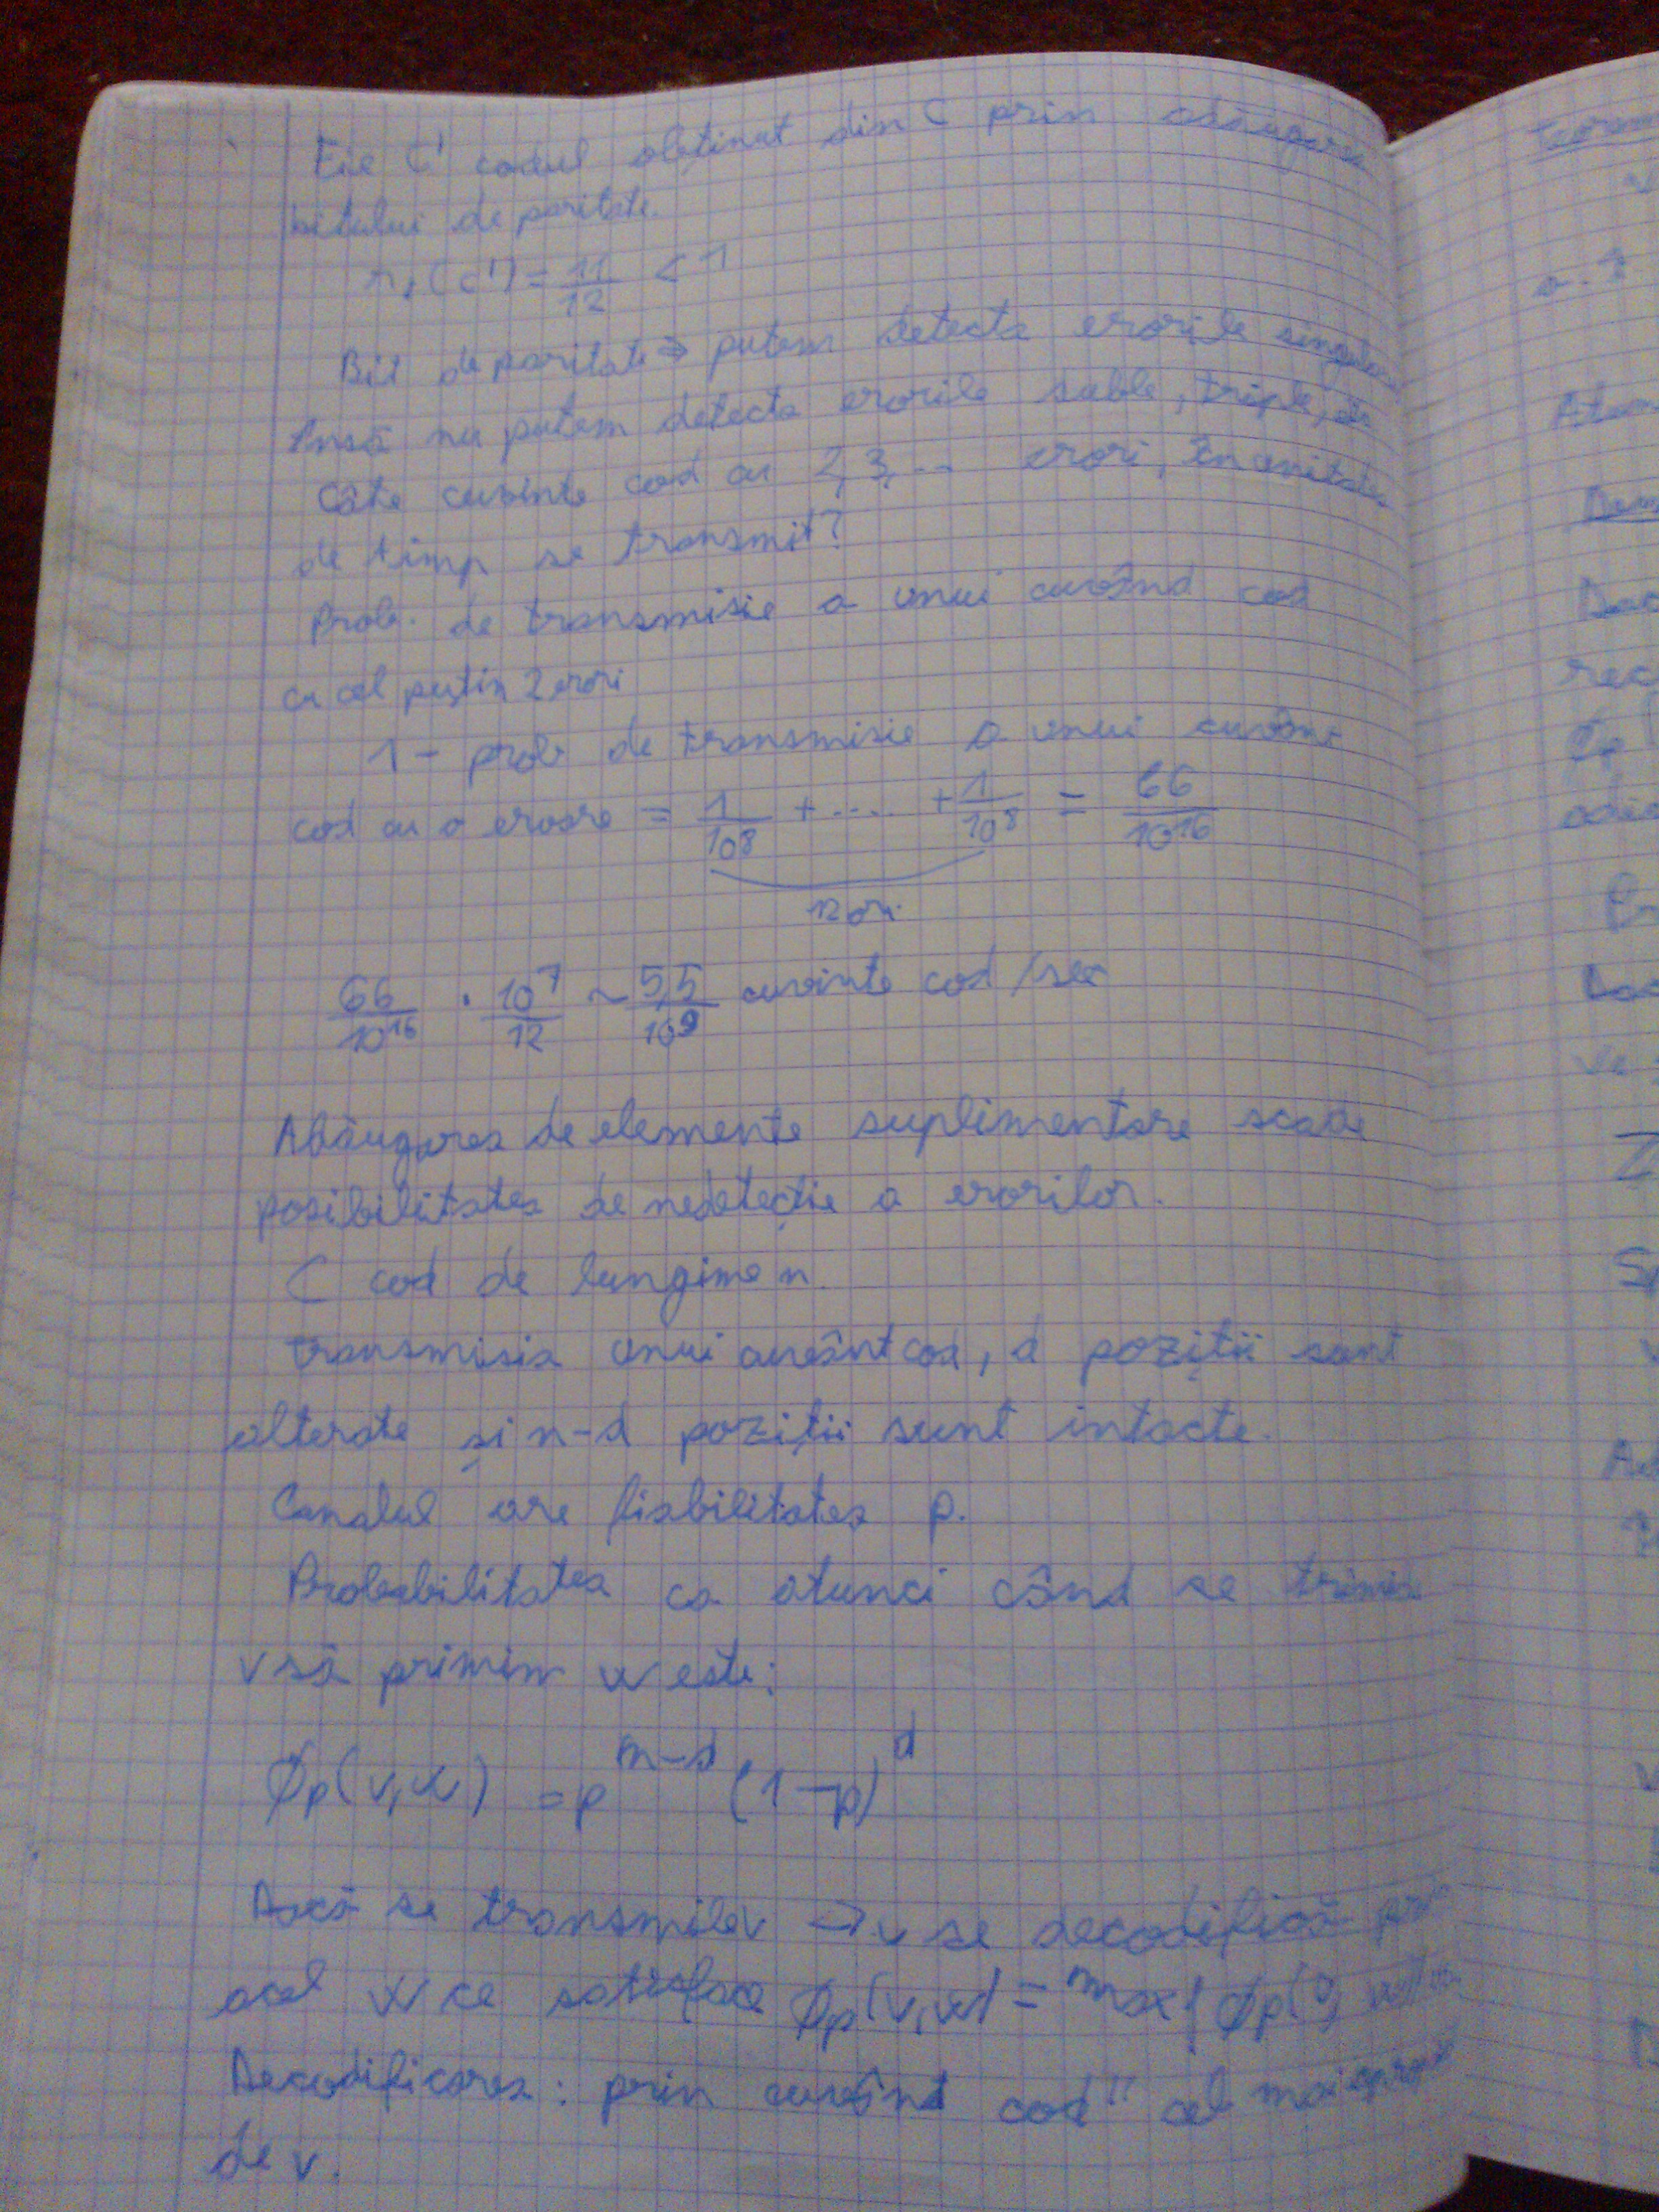 Fie C' codul obținut din C prin adăugarea
bitului de paritate.
r,(C') = 11/12 < 1
Bit de paritate ⇒ putem detecta erorile singulare
Însă nu putem detecta erorile duble, triple, etc
Câte cuvinte cod cu 2, 3, ... erori, în unitatea
de timp se transmit?
Prob. de transmisie a unui cuvând cod
cu cel puțin 2 erori
1 - prob de transmisie a unui cuvânt
cod cu o eroare = 1/10^8 + .... + 1/10^8 = 66/10^16
12 ori
66/10^16 · 10^7/12 ~ 5,5/10^9 cuvinte cod /sec
Adăugarea de elemente suplimentare scade
posibilitatea de nedetecție a erorilor.
C cod de lungime n.
transmisia unui cuvânt cod, d poziții sunt
alterate și n-d poziții sunt intacte.
Canalul are fiabilitatea p.
Probabilitatea ca atunci când se trimite
v să primim w este:
ϕp(v,w) = p^(n-d) (1-p)^d
Dacă se transmite v → v se decodifică
acel w ce satisface ϕp(v,w) = max{ϕp(
Decodificarea: prin cuvând cod" cel mai
de v.
Teorem
a.?
Dem
Dac
rec